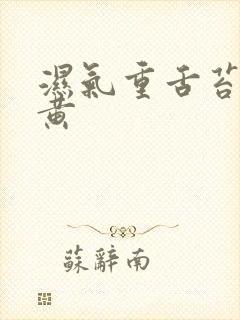 濕氣重舌苔
黃
蘇辭南